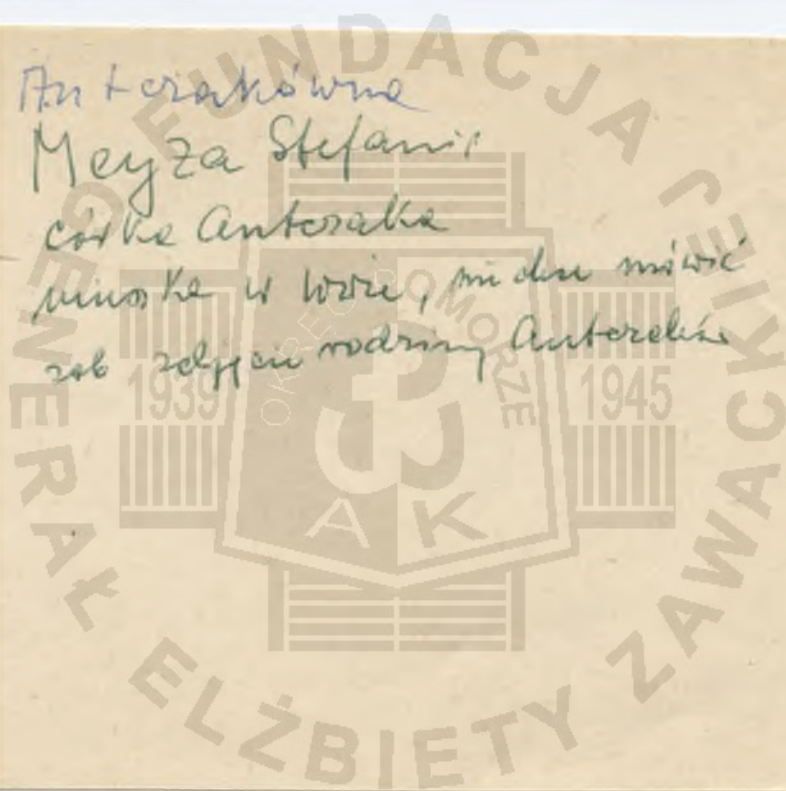 Antczakówna
Meyza Stefania
córka Antczaka
w, nie chce mówić
zob zdjęcie rodziny Antczaków
FUNDACJA
GENERAŁ ELŻBIETY ZAWACKIEJ
OKRĘG POMORZE
1939
1945
AK